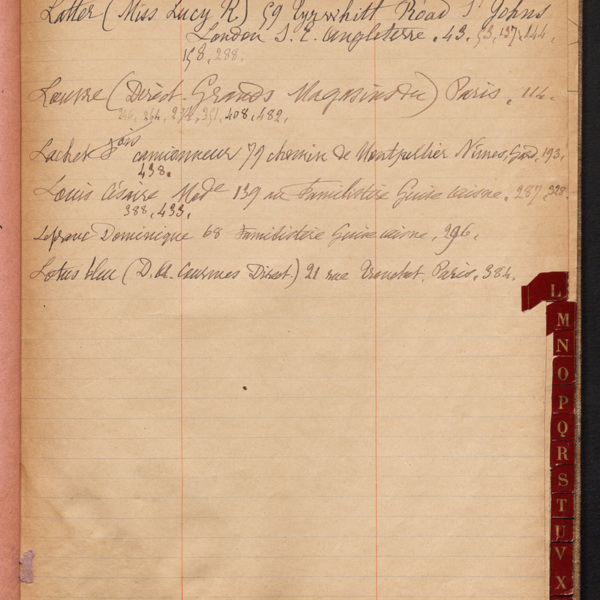 Latter (Miss Lucy R) 59 Tyrwhitt Road St Johns
London S. E. Angleterre. 43, 53, 137, 144,
158, 288.
Louvre (Direct. Grands Magasins du) Paris, 114.
244, 351, 408, 482,
Lachet jois camionneur 79 chemin de Montpellier Nîmes, Gard, 193,
438.
Louis Césaire Made 139 au Familistère Guise aisne, 287, 328
388, 433,
Lefranc Dominique 68 Familistère Guise aisne, 296.
Lotus bleu (D. A. Courmes Direct) 21 rue Tronchet. Paris, 384.
L
M
N
O
P
Q
R
S
T
U
V
X